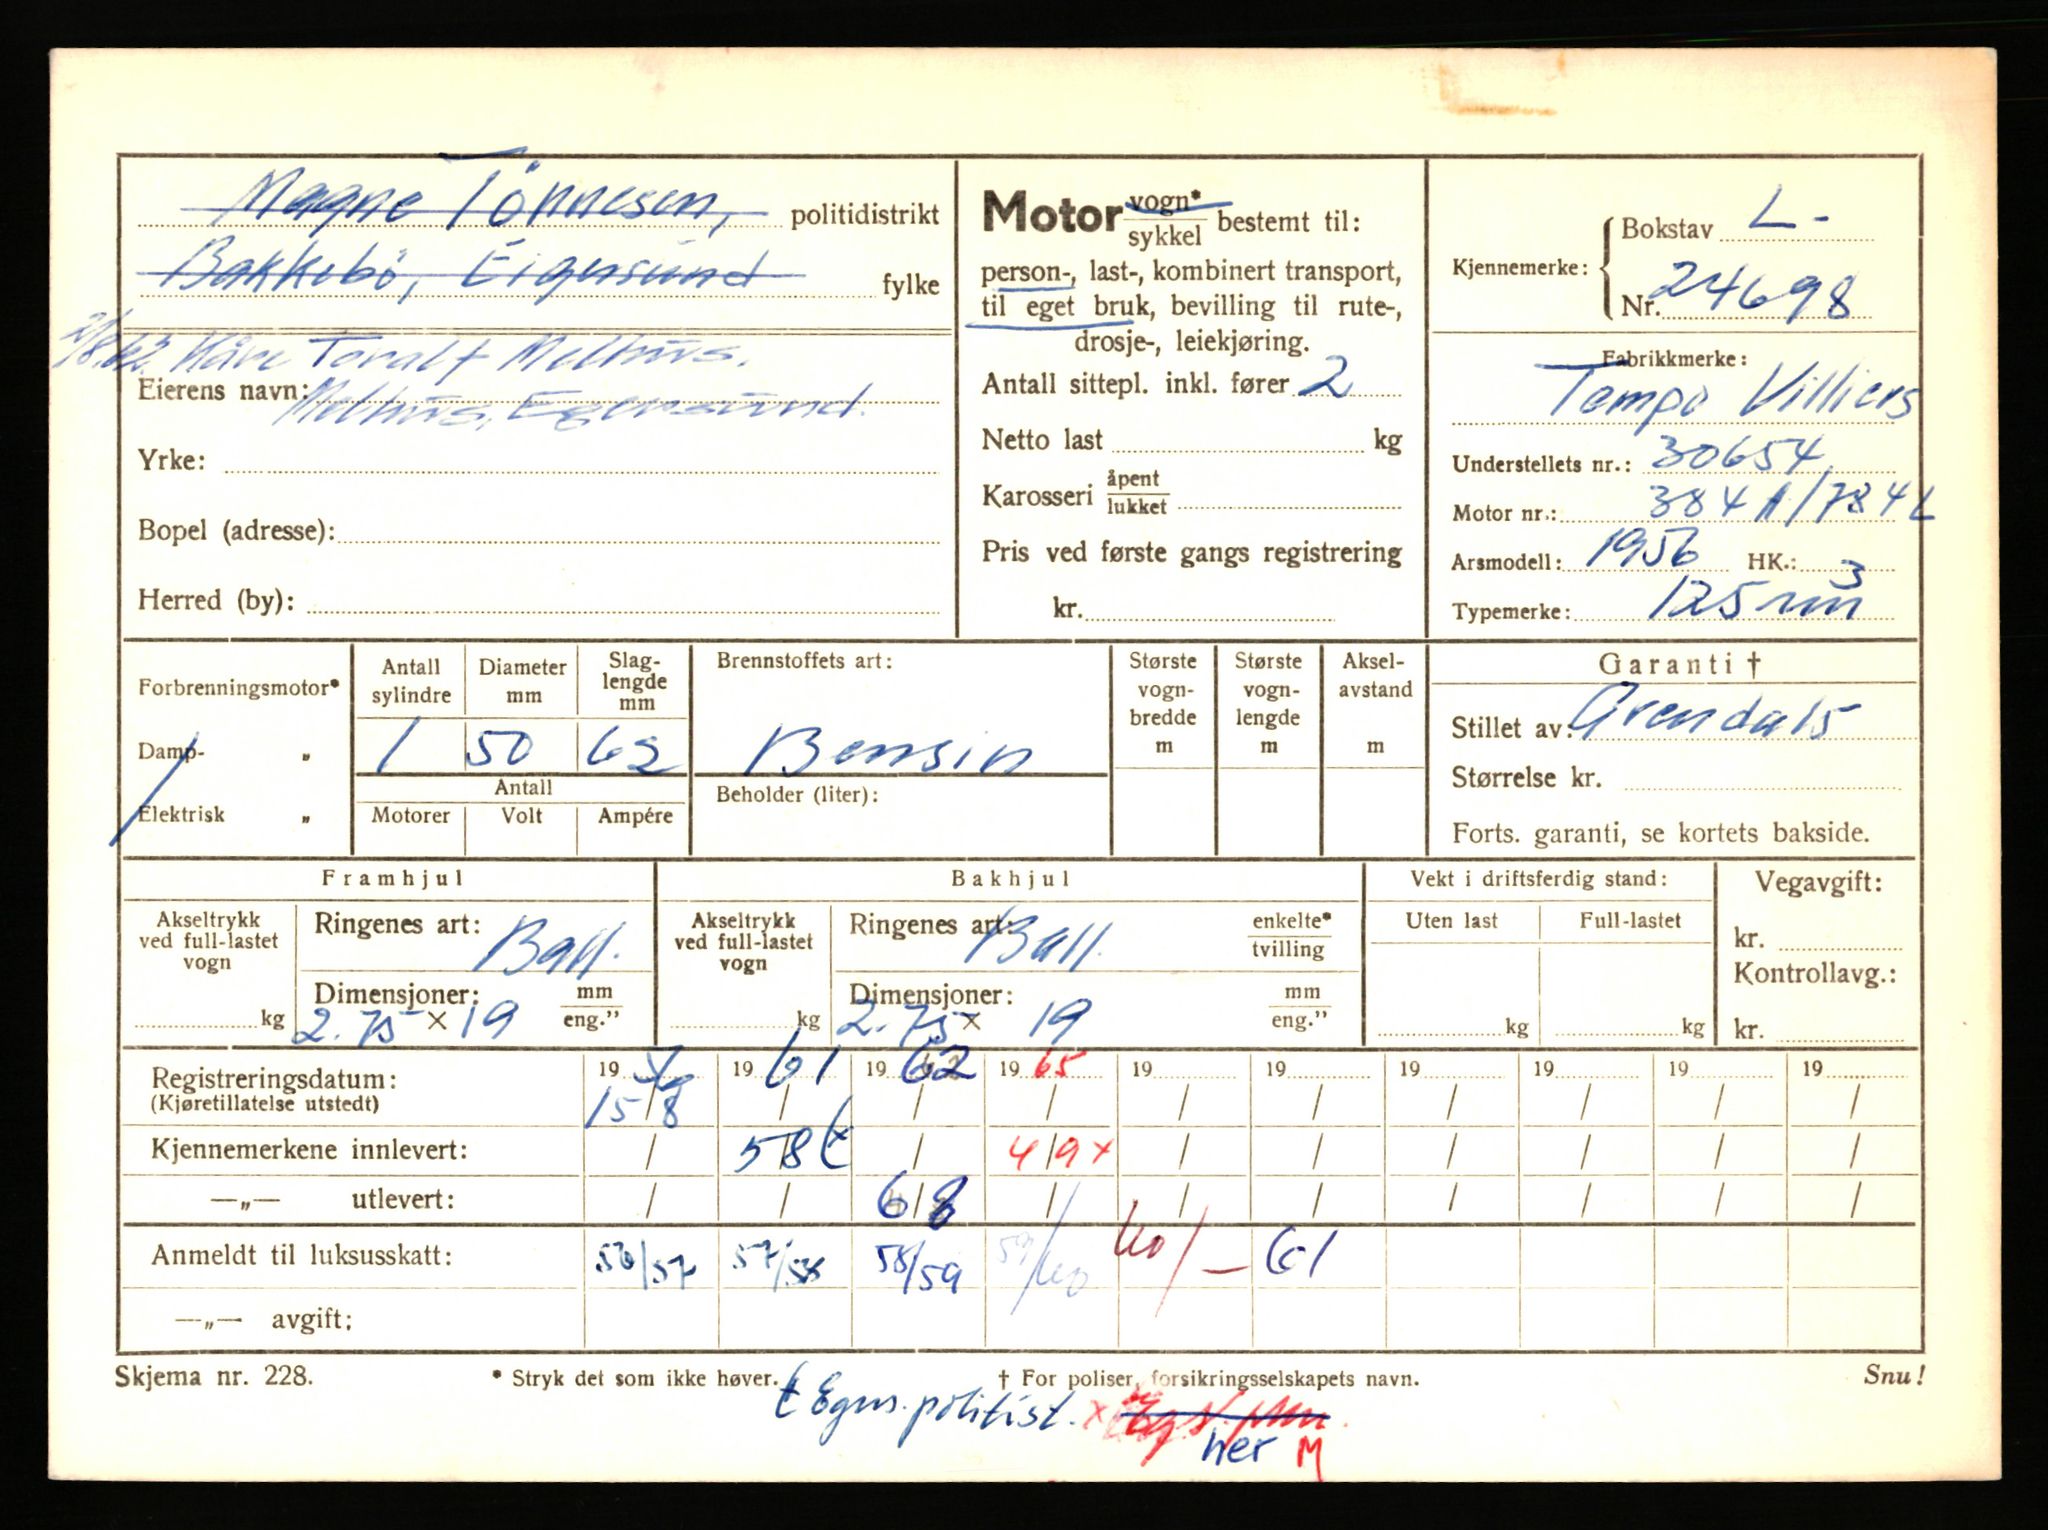 Magne Tönnesen, politidistrikt
Bakkebö, Eigersund fylke
Kåre Toralf Melhus.
Eierens navn: Melhus, Egersund.
Yrke:
Bopel (adresse):
Herred (by):
Motor vogn* / sykkel bestemt til:
person-, last-, kombinert transport,
til eget bruk, bevilling til rute-,
drosje-, leiekjøring.
Antall sittepl. inkl. fører 2
Netto last kg
Karosseri åpent / lukket
Pris ved første gangs registrering
kr.
Kjennemerke: Bokstav L-
Nr. 24698
Fabrikkmerke:
Tempo Villiers
Understellets nr.: 30654
Motor nr.: 384 A/784 L
Arsmodell: 1956 HK.: 3
Typemerke: 125
Forbrenningsmotor*
Damp- „
Elektrisk „
Antall sylindre Diameter mm Slag-lengde mm
1 50 62
Antall
Motorer Volt Ampére
Brennstoffets art:
Bensin
Beholder (liter):
Største vogn-bredde m
Største vogn-lengde m
Aksel-avstand m
Garanti †
Stillet av: Arendals
Størrelse kr.
Forts. garanti, se kortets bakside.
Framhjul
Akseltrykk ved full-lastet vogn kg
Ringenes art: Ball.
Dimensjoner: mm / eng."
2.75 × 19
Bakhjul
Akseltrykk ved full-lastet vogn kg
Ringenes art: Ball. enkelte* / tvilling
Dimensjoner: mm / eng."
2.75 × 19
Vekt i driftsferdig stand:
Uten last Full-lastet
kg kg
Vegavgift:
kr.
Kontrollavg.:
kr.
Registreringsdatum: 19 56 19 61 19 62 19 65 19 19 19 19 19 19
(Kjøretillatelse utstedt) 15/8 / / / / / / / / /
Kjennemerkene innlevert: / 5/8 t / 4/9 x / / / / / /
—„— utlevert: / / 6/8 / / / / / / /
Anmeldt til luksusskatt: 56/57 57/58 58/59 59/60 60/ — 61
—„— avgift:
Skjema nr. 228. * Stryk det som ikke høver. † For poliser, forsikringsselskapets navn. Snu!
t Egns. politist. x
her M